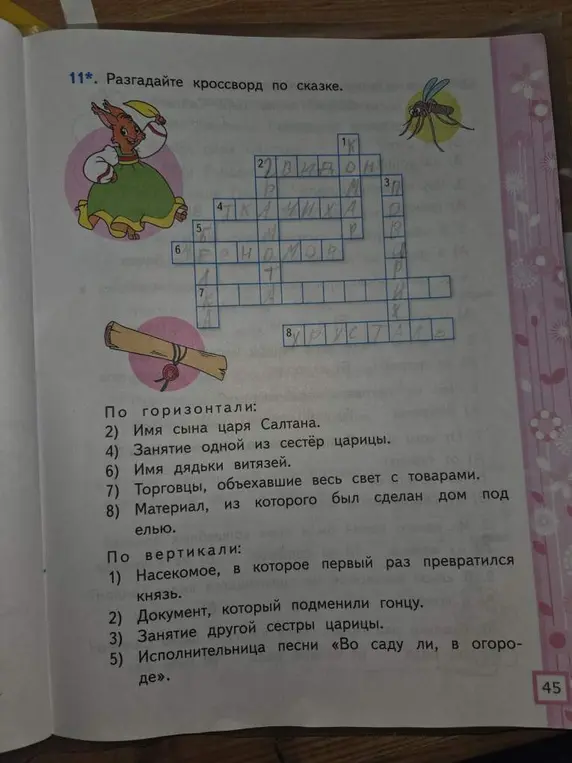 11*. Разгадайте кроссворд по сказке.
1К
2ГВИДОН
3П
4ТКАЧИХА
5
6
7
8ХРУСТАЛЬ
По горизонтали:
2) Имя сына царя Салтана.
4) Занятие одной из сестёр царицы.
6) Имя дядьки витязей.
7) Торговцы, объехавшие весь свет с товарами.
8) Материал, из которого был сделан дом под
елью.
По вертикали:
1) Насекомое, в которое первый раз превратился
князь.
2) Документ, который подменили гонцу.
3) Занятие другой сестры царицы.
5) Исполнительница песни «Во саду ли, в огоро-
де».
45